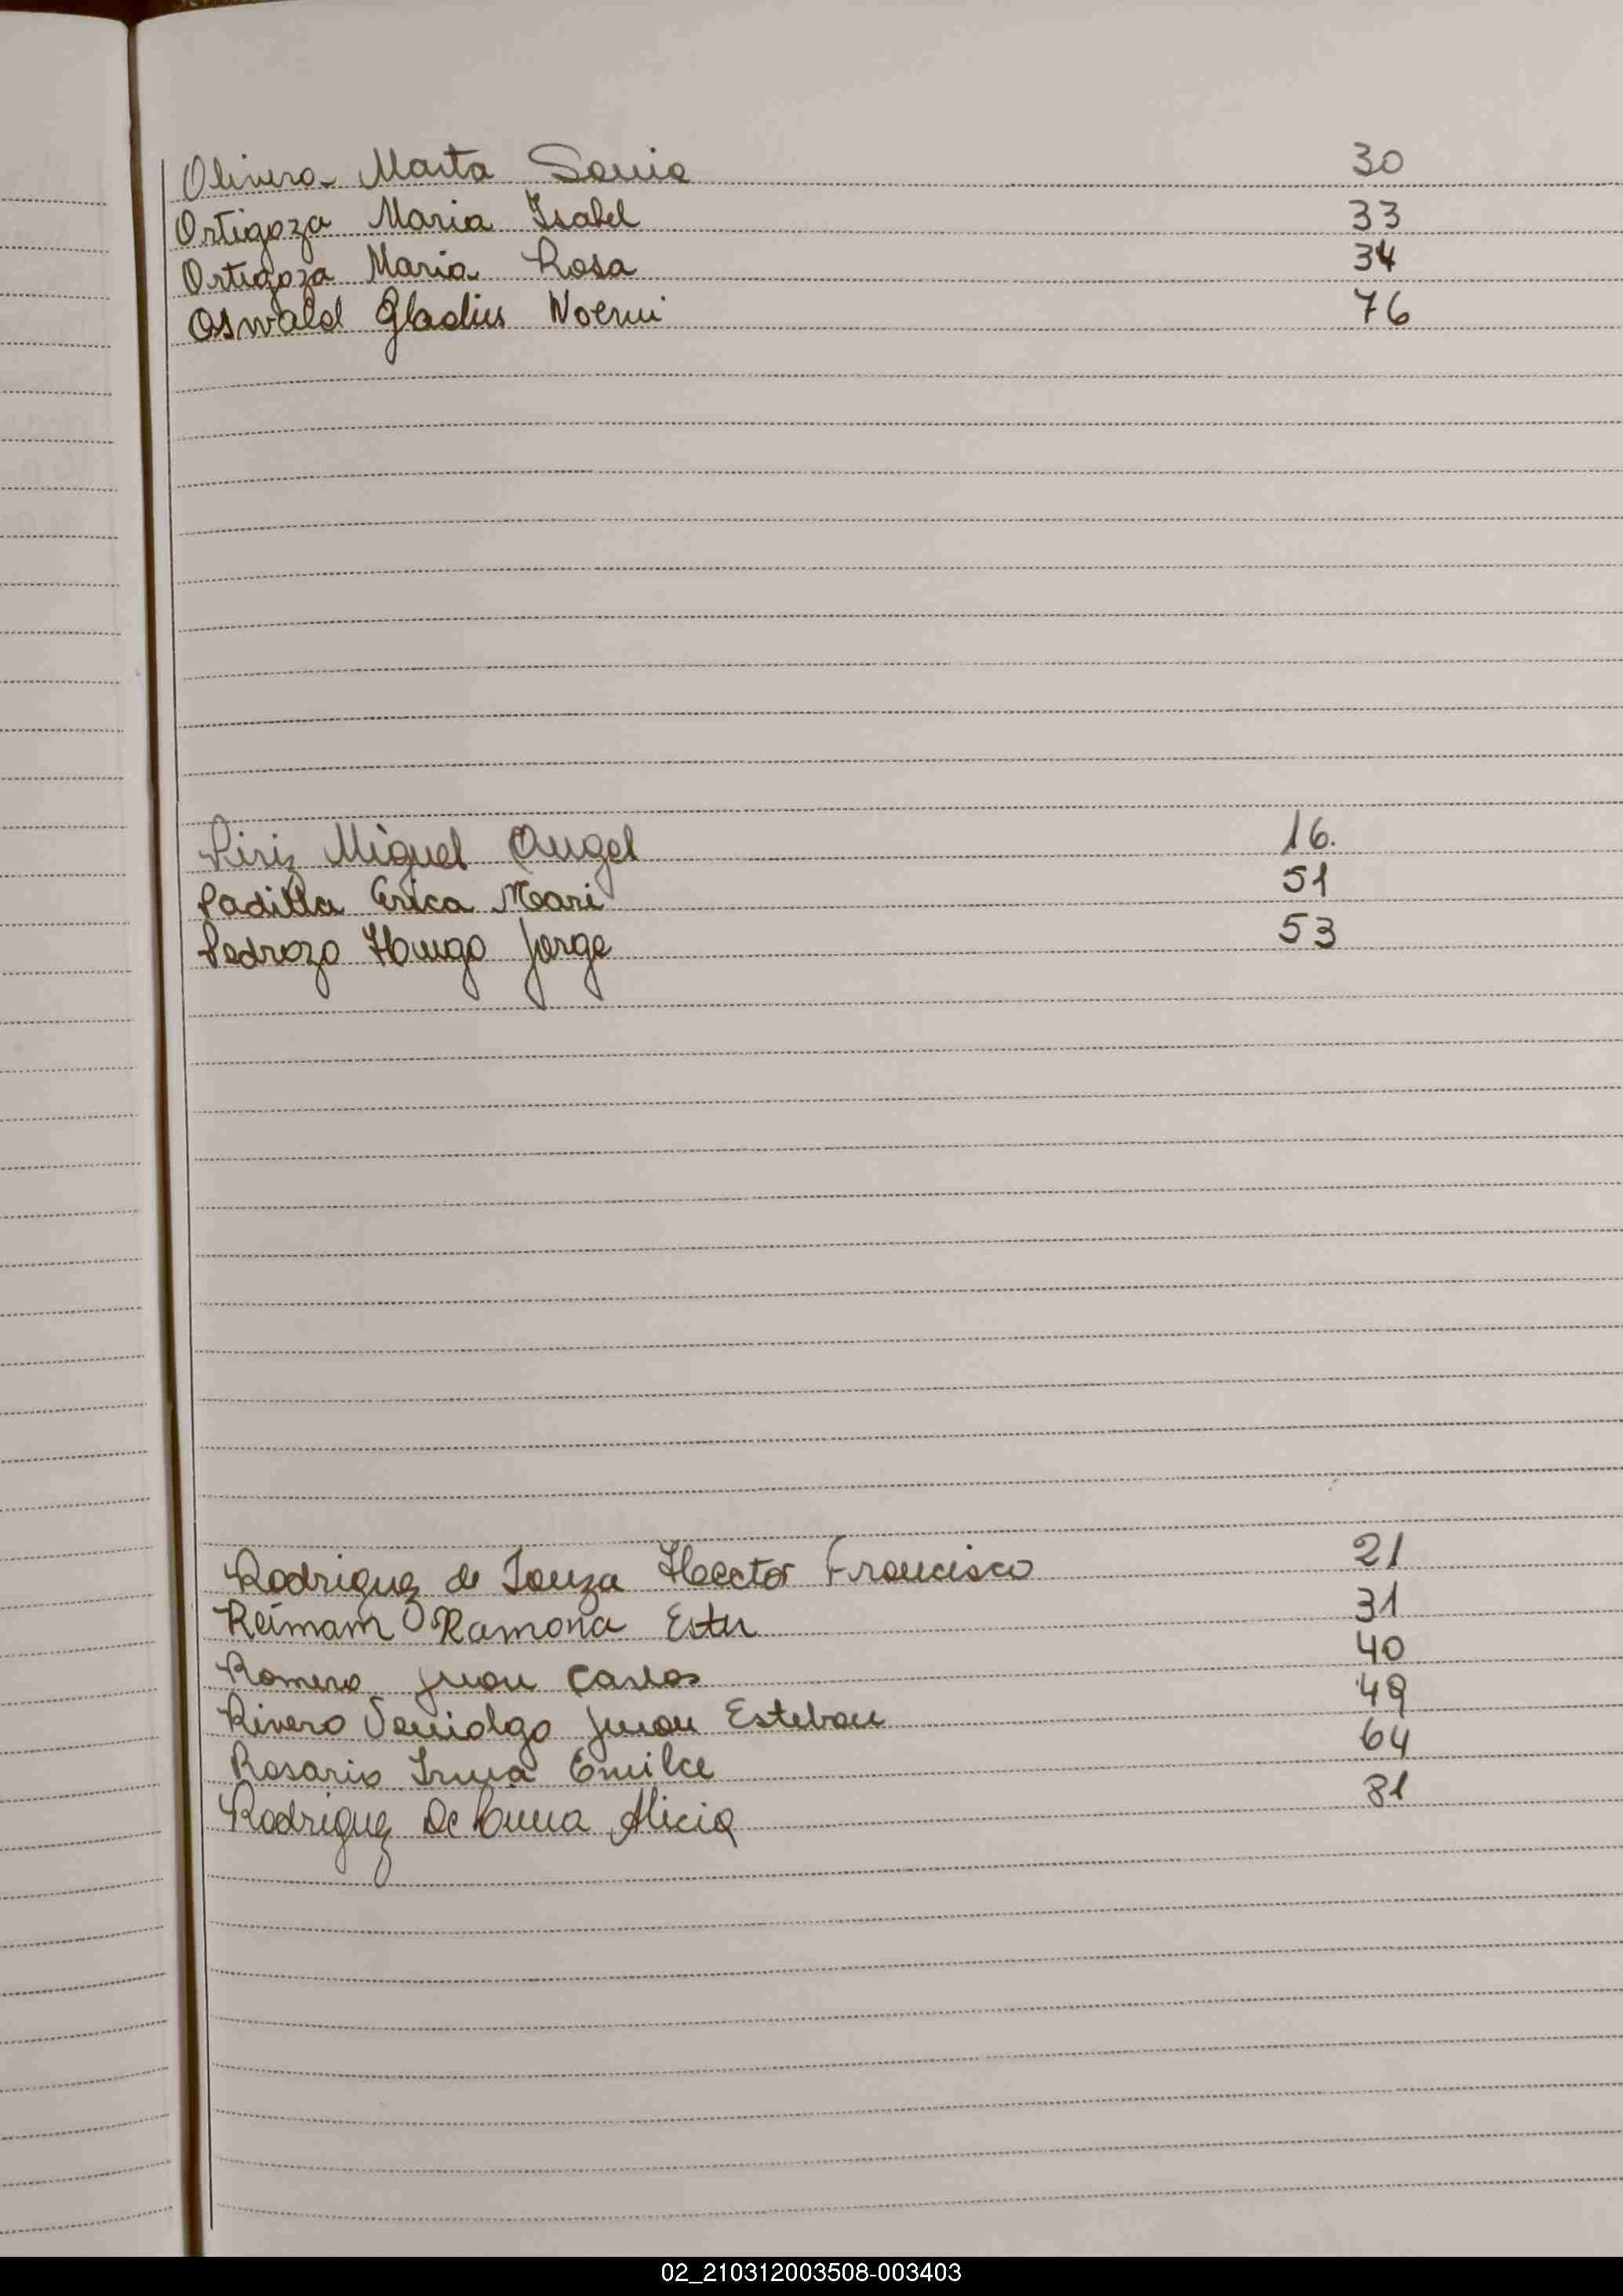 Olivera Marta Sonia 30
Ortigoza Maria Isabel 33
Ortigoza Maria Rosa 34
Oswald Gladius Noemi 76
Piriz Miguel Angel 16.
Padilla Erica Mari 51
Pedrozo Hugo Jorge 53
Rodriguez de Souza Hector Francisco 21
Reimam Ramona Ester 31
Romero Juan Carlos 40
Rivero Juan Esteban 49
Rosario Irma Emilce 64
Rodriguez De Alicia 81
02_210312003508-003403